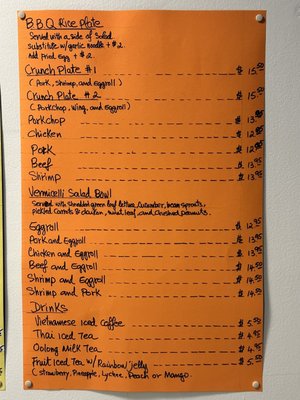 B.B.Q Rice Plate
Served with a side of Salad.
Substitute w/garlic noodle + $2.
Add Fried Egg + $2.
Crunch Plate #1 $ 15.50
(Pork, Shrimp, and Eggroll)
Crunch Plate #2 $ 15.50
(Porkchop, Wing, and Eggroll)
Porkchop $ 13.95
Chicken $ 12.95
Pork $ 12.95
Beef $ 13.95
Shrimp $ 13.95
Vermicelli Salad Bowl
Served with Shredded green leaf lettuce, Cucumber, bean sprouts,
pickled Carrots & daikon, mint leaf, and Crushed Peanuts.
Eggroll $ 12.95
Pork and Eggroll $ 13.95
Chicken and Eggroll $ 13.95
Beef and Eggroll $ 14.50
Shrimp and Eggroll $ 14.50
Shrimp and Pork $ 14.50
Drinks
Vietnamese Iced Coffee $ 5.50
Thai Iced Tea $ 4.95
Oolong Milk Tea $ 4.95
Fruit Iced Tea w/ Rainbow jelly $ 5.50
(Strawberry, Pineapple, Lychee, Peach or Mango.